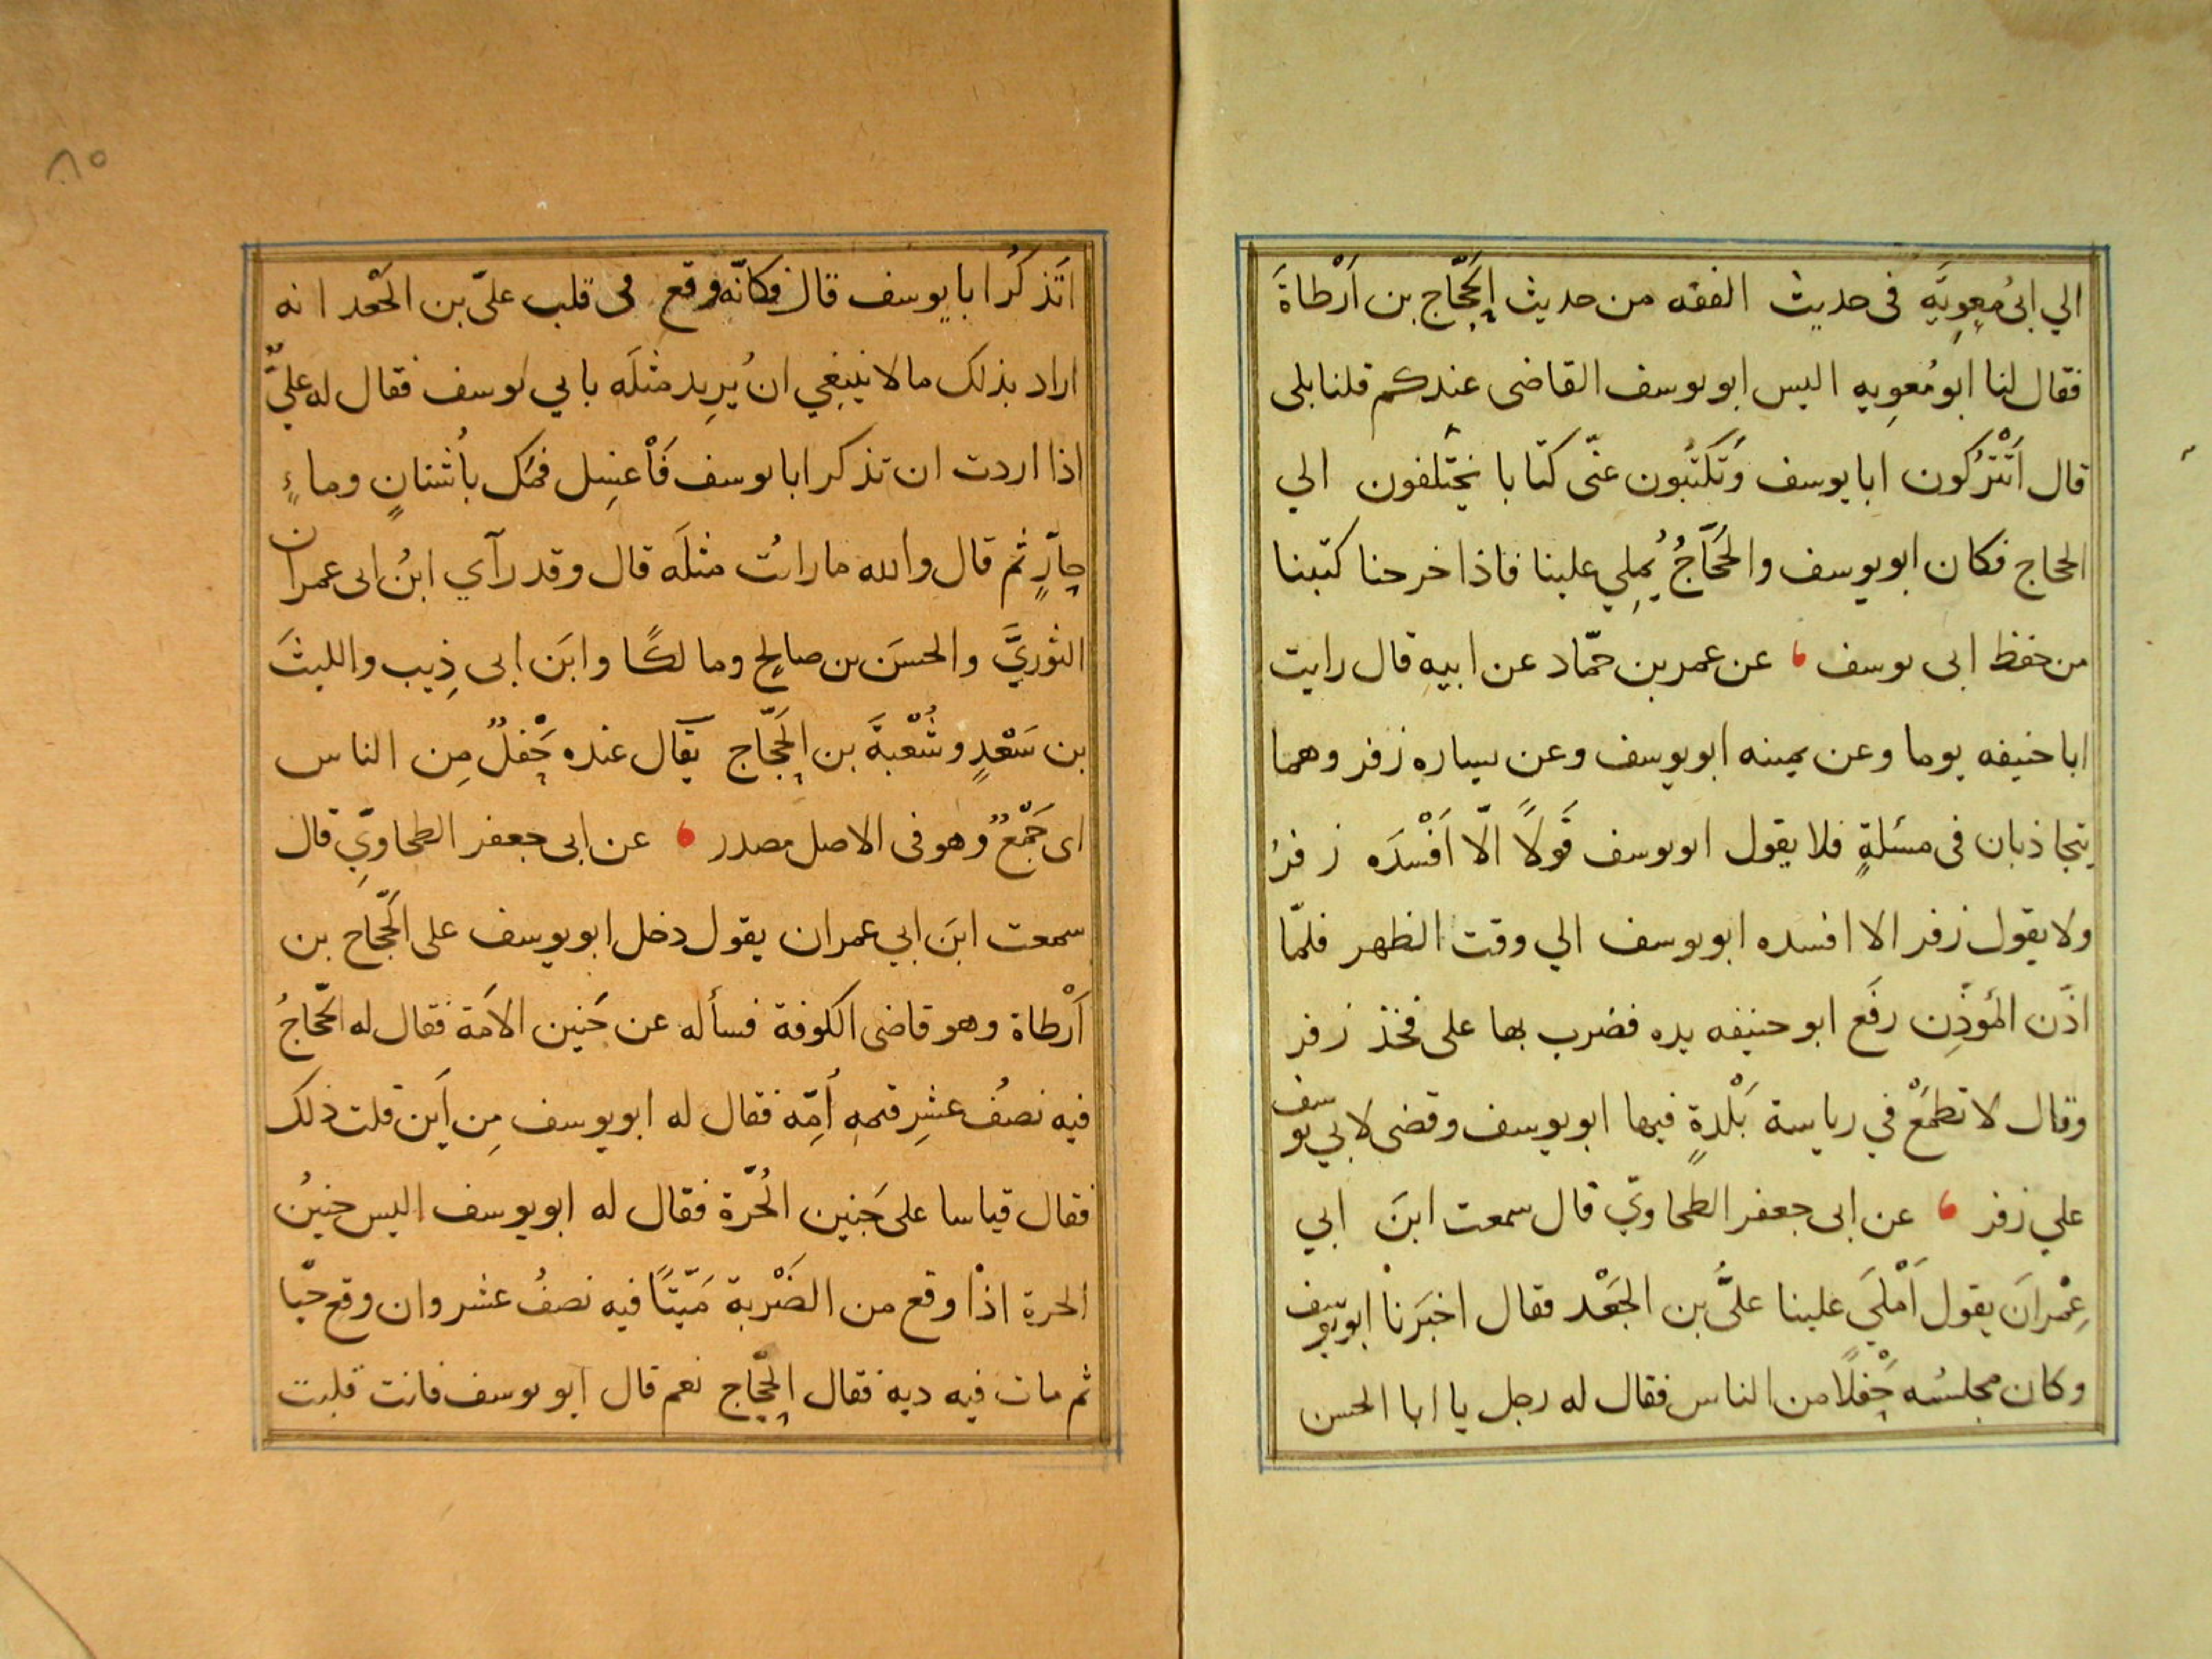 الي ابى مُعوِيَةَ فى حديث الفقه من حديث الحَجّاج بن اَرْطاةَ
فقال لنا ابو مُعوِيه اليس ابو يوسف القاضى عندكم قلنا بلى
قال اَتَتْرُكون ابا يوسف وَتَكتُبون عنّى كنّا با نختلفون الي
الحجاج فكان ابو يوسف والحَجّاجُ يُملِي علينا فاذا خرجنا كتبنا
من حفظ ابى يوسف ، عن عمر بن حمّاد عن ابيهِ قال رايت
ابا حنيفه يوما وعن يمينه ابو يوسف وعن يساره زفر وهما
يتجاذبان فى مسئلةٍ فلا يقول ابو يوسف قَولاً الّا اَفْسَدَه زفرُ
ولا يقول زفر الا افسده ابو يوسف الي وقت الظهر فلمّا
اذّن المُؤذِّن رفَع ابو حنيفه يده فضرب بها على فخذ زفر
وقال لا تطمَعْ في رياسة بَلْدةٍ فيها ابو يوسف وقضى لابي يوسف
علي زفر ، عن ابى جعفر الطحاويّ قال سمعت ابنَ ابي
عِمْرانَ يقول اَمْلَي علينا عليُّ بن الجَعْد فقال اخبَرنا ابو يوسف
وكان مجلسُه جَفْلًا من الناس فقال له رجل يا ابا الحسن
اَتَذكُرُ ابا يوسف قال فكانّه وقع فى قلب عليّ بن الجَعْد انه
اراد بذلك ما لا ينبغِي انْ يُرِيد مثلَه بابي يوسف فقال له عليٌّ
اذا اردت ان تذكر ابا يوسف فَاْغسِل فمَك بأُشنانٍ وماءٍ
حارٍّ ثم قال والله ما رايتُ مثلَه قال وقد رآي ابنُ ابى عمران
الثوريَّ والحسَن بن صالحٍ ومالكًا وابنَ ابى ذِيب والليثَ
بن سَعْدٍ وشُعْبةَ بن الحَجّاج يقَال عنده جَفْلٌ مِن الناس
اى جَمْعٌ وهو فى الاصل مصدر ، عن ابى جعفر الطحاويّ قال
سمعت ابنَ ابي عمران يقول دخل ابو يوسف على الحَجّاج بن
اَرْطاة وهو قاضى الكوفة فسأله عن جَنين الاَمَة فقال له الحَجّاجُ
فيه نصفُ عشرِ قيمهِ أُمِّه فقال له ابو يوسف مِن اَين قلت ذلك
فقال قياسا على جَنين الحُرّة فقال له ابو يوسف اليس جنينُ
الحرة اذا وقع من الضَرْبة مَيّتًا فيه نصفُ عشر وان وقع حيّا
ثم مات فيه ديه فقال الحَجّاج نعم قال ابو يوسف فانت قلبت
٨٥